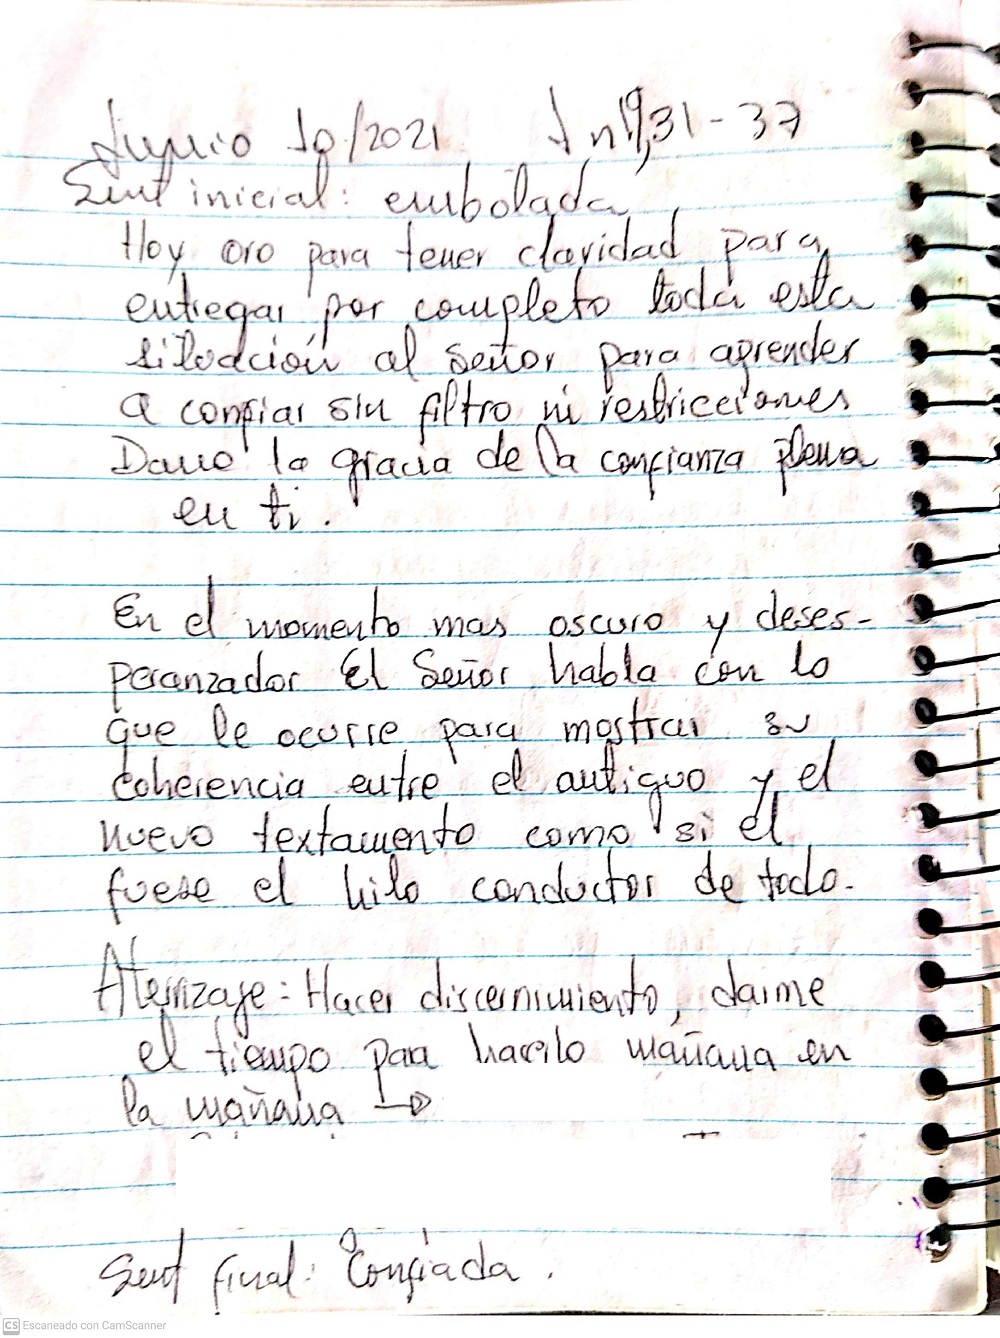 Junio 10/2021 Jn 19,31-37
Sent inicial: embolada
Hoy oro para tener claridad para
entregar por completo toda esta
situación al Señor para aprender
a confiar sin filtro ni restricciones
Dame la gracia de la confianza plena
en ti.
En el momento mas oscuro y deses-
peranzador El Señor habla con lo
que le ocurre para mostrar su
coherencia entre el antiguo y el
nuevo textamento como si el
fuese el hilo conductor de todo.
Aterrizaje: Hacer discernimiento, darme
el tiempo para hacerlo mañana en
la mañana →
Sent final: Confiada.
CS Escaneado con CamScanner